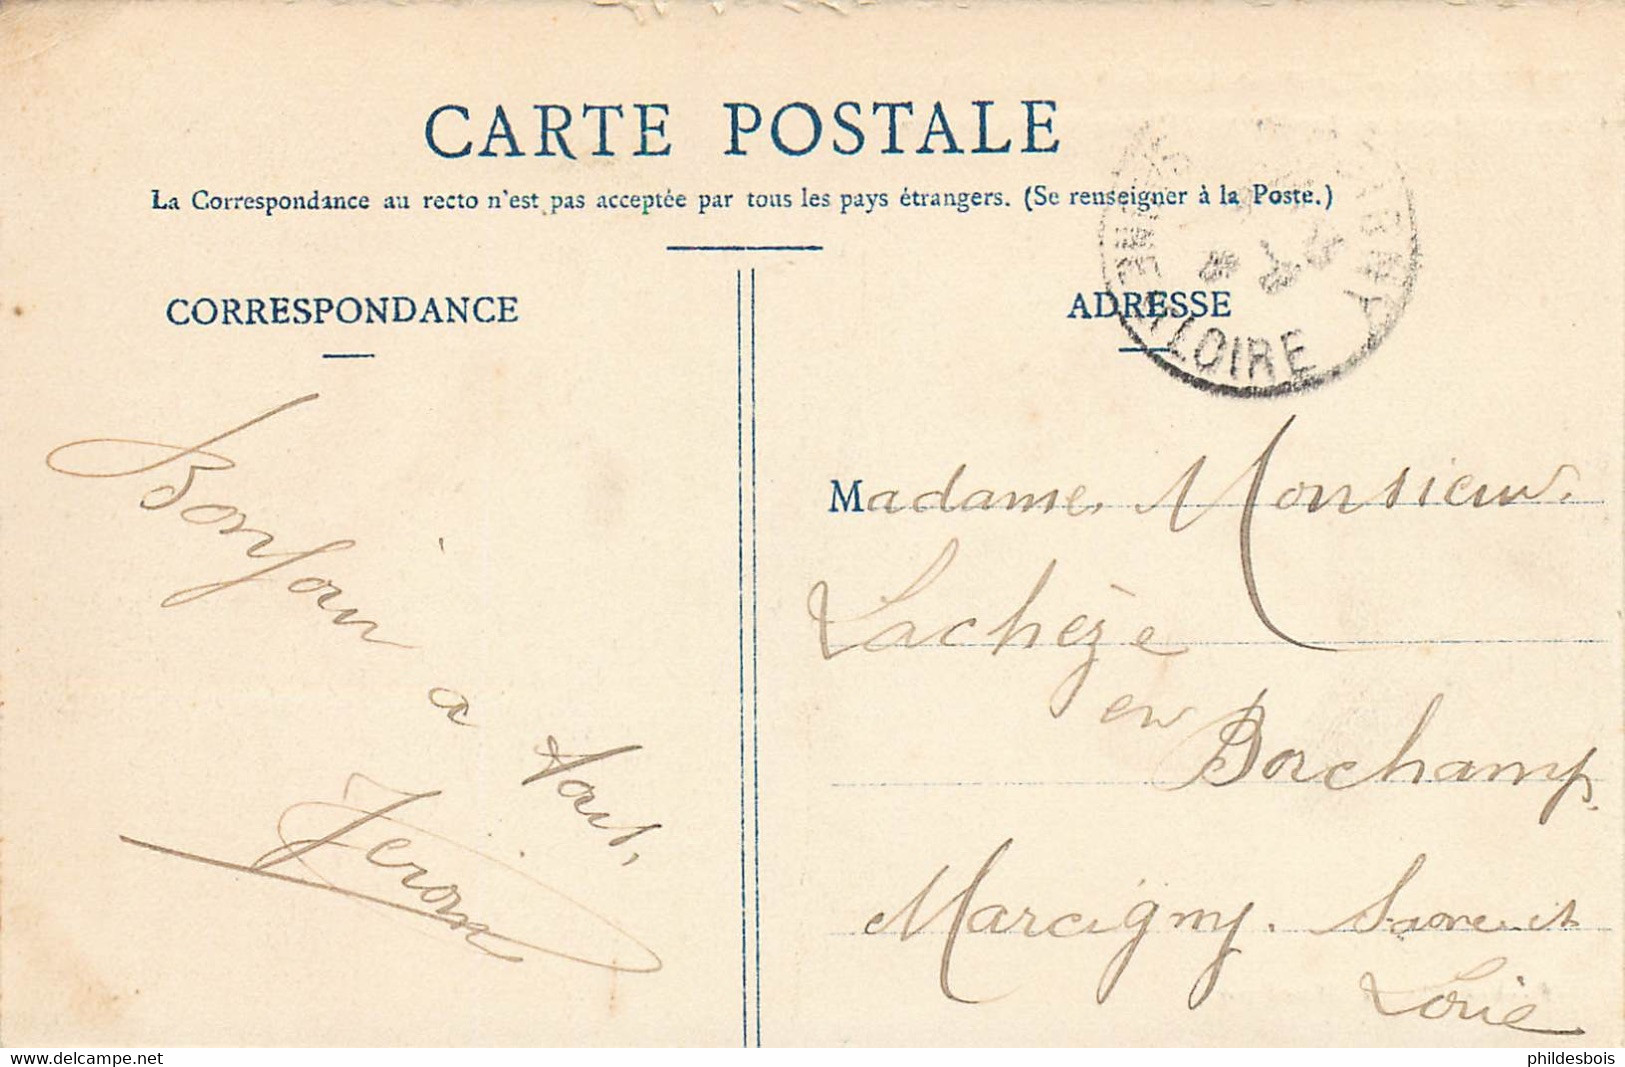 CARTE POSTALE
La Correspondance au recto n'est pas acceptée par tous les pays étrangers. (Se renseigner à la Poste.)
CORRESPONDANCE
Bonjour
à
tous,
Jérôme
ADRESSE
LOIRE
Madame Monsieur
Lachèze
en Borchamp
Marcigny. Saone et
Loire
www.delcampe.net
phildesbois